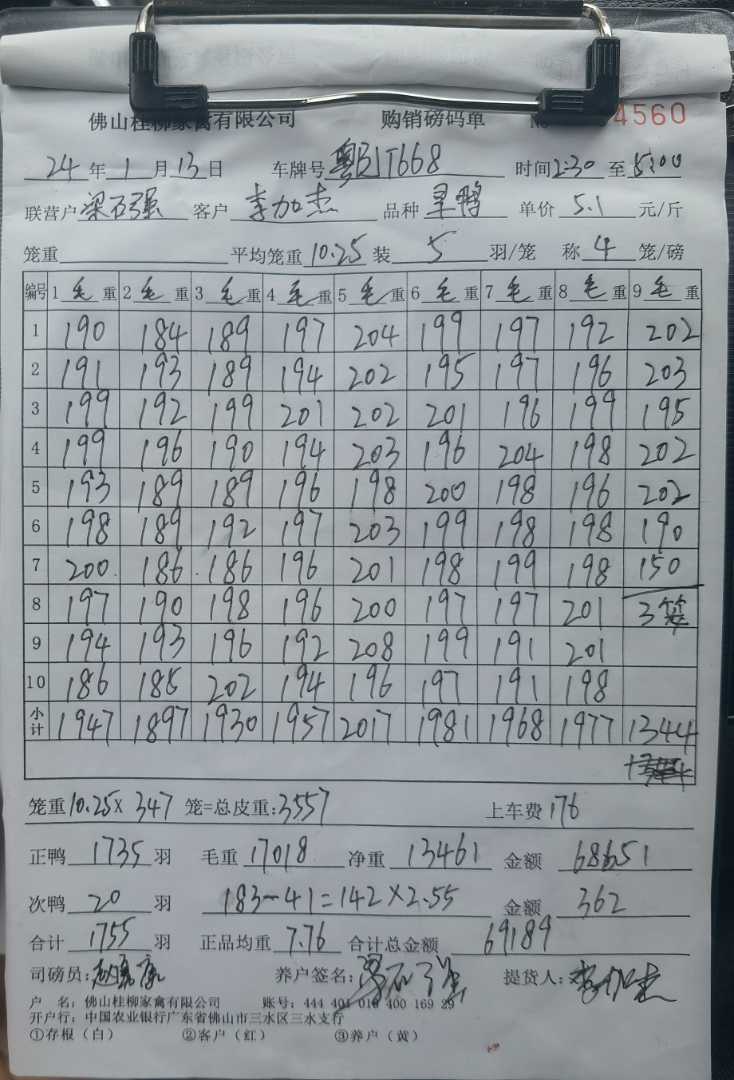 佛山桂柳家禽有限公司 购销磅码单 No 4560
24 年 1 月 13 日 车牌号 粤 JT668 时间 2:30 至 5:00
联营户 梁石强 客户 李加杰 品种 旱鸭 单价 5.1 元/斤
笼重 平均笼重 10.25 装 5 羽/笼 称 4 笼/磅
编号 1 毛 重 2 毛 重 3 毛 重 4 毛 重 5 毛 重 6 毛 重 7 毛 重 8 毛 重 9 毛 重
1 190 184 189 197 204 199 197 192 202
2 191 193 189 194 202 195 197 196 203
3 199 192 199 201 202 201 196 199 195
4 199 196 190 194 203 196 204 198 202
5 193 189 189 196 198 200 198 196 202
6 198 189 192 197 203 199 198 198 190
7 200 186 186 196 201 198 199 198 150
8 197 190 198 196 200 197 197 201 3笼
9 194 193 196 192 208 199 191 201
10 186 185 202 194 196 197 191 198
小计 1947 1897 1930 1957 2017 1981 1968 1977 1344
笼重 10.25× 347 笼=总皮重: 3557 上车费 176
正鸭 1735 羽 毛重 17018 净重 13461 金额 68651
次鸭 20 羽 183-41=142×2.55 金额 362
合计 1755 羽 正品均重 7.76 合计总金额 69189
司磅员: 养户签名: 梁石强 提货人: 李加杰
户 名: 佛山桂柳家禽有限公司 账号: 444 401 010 400 169 29
开户行: 中国农业银行广东省佛山市三水区三水支行
①存根（白） ②客户（红） ③养户（黄）